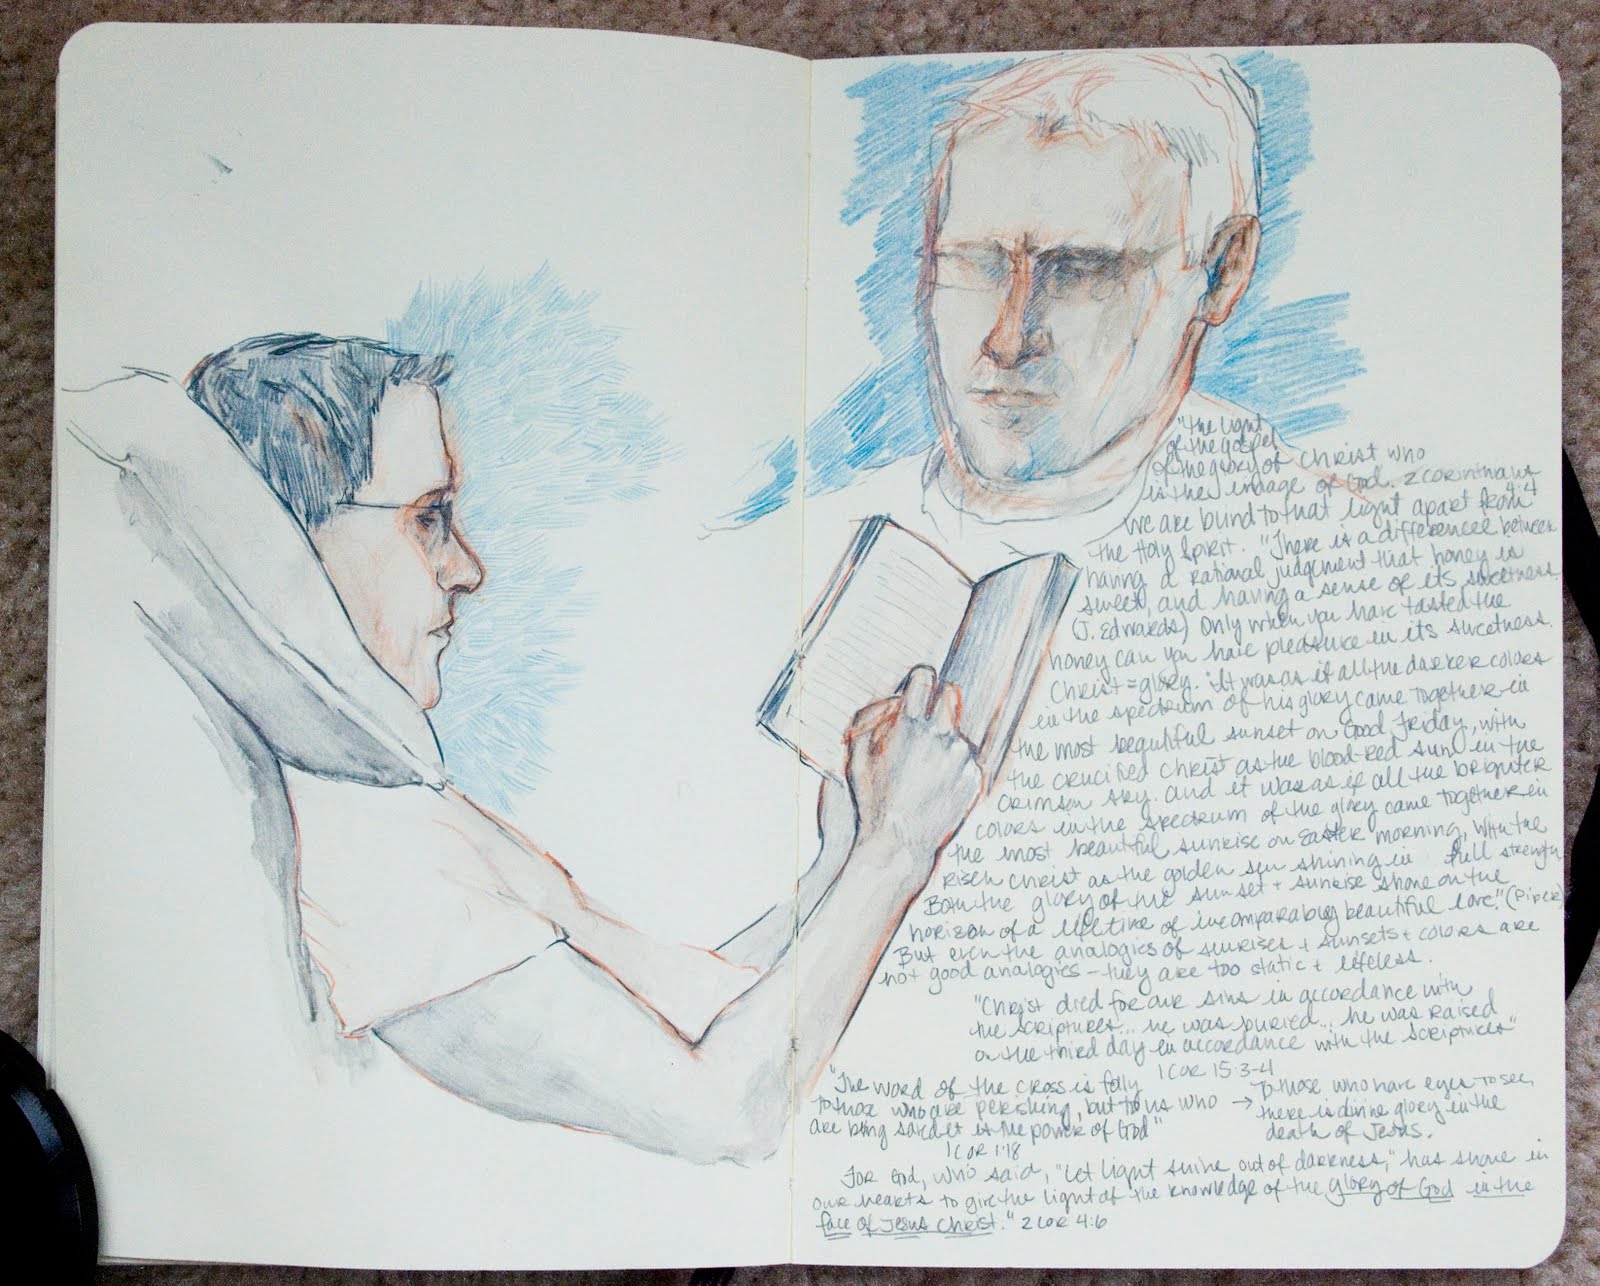 "The light
of the gospel
of the glory of Christ who
is the image of God. 2 Corinthians
4:4
We are blind to that light apart from
the Holy Spirit. "There is a difference between
having a rational judgement that honey is
sweet, and having a sense of its sweetness.
(J. Edwards) Only when you have tasted the
honey can you have pleasure in its sweetness.
Christ = glory. "It was as if all the darker colors
in the spectrum of his glory came together in
the most beautiful sunset on Good Friday, with
the crucified Christ as the blood-red sun in the
crimson sky. And it was as if all the brighter
colors in the spectrum of the glory came together in
the most beautiful sunrise on Easter morning, with the
risen Christ as the golden sun shining in full strength
Both the glory of the sunset + sunrise shone on the
horizon of a lifetime of incomparably beautiful love." (Piper)
But even the analogies of sunrises + sunsets + colors are
not good analogies - they are too static + lifeless.
"Christ died for our sins in accordance with
the scriptures... he was buried... he was raised
on the third day in accordance with the scriptures"
1 Cor 15:3-4
"The word of the cross is folly
to those who are perishing, but to us who
are being saved it is the power of God"
1 Cor 1:18
→ To those who have eyes to see,
there is divine glory in the
death of Jesus.
For God, who said, "Let light shine out of darkness," has shone in
our hearts to give the light of the knowledge of the glory of God in the
face of Jesus Christ." 2 Cor 4:6